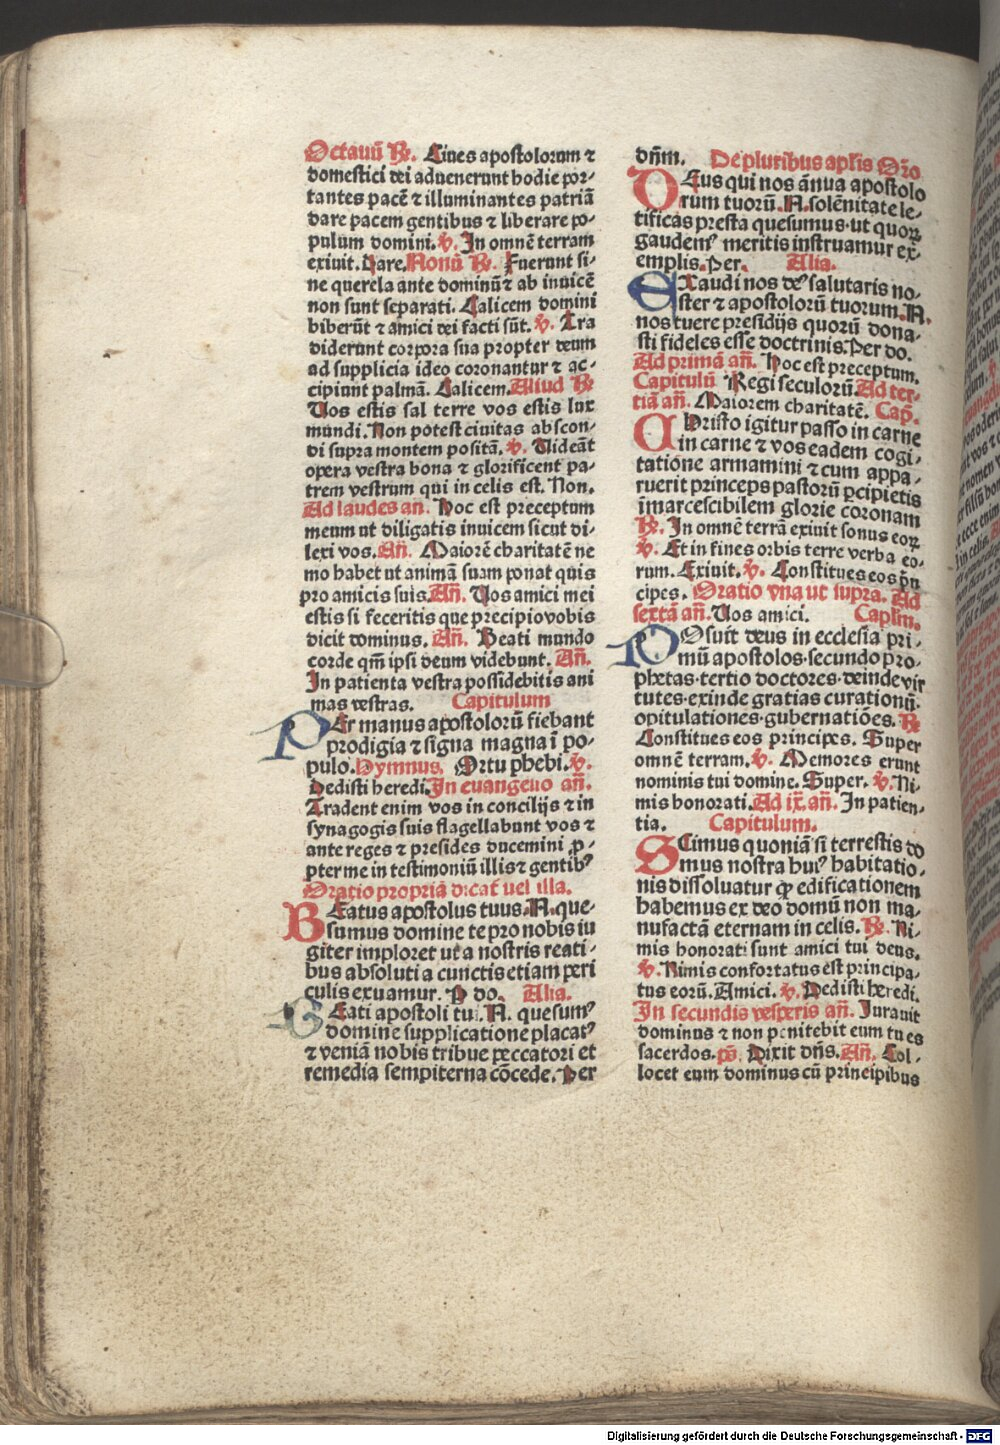 Octauũ ℟. Ciues apostolorum ⁊
domestici dei aduenerunt hodie por-
tantes pacẽ ⁊ illuminantes patriã
dare pacem gentibus ⁊ liberare po-
pulum domini. ℣. In omnẽ terram
exiuit. Dare. Nonũ ℟. Fuerunt si-
ne querela ante dominũ ⁊ ab inuicẽ
non sunt separati. Calicem domini
biberũt ⁊ amici dei facti sũt. ℣. Tra
diderunt corpora sua propter deum
ad supplicia ideo coronantur ⁊ ac-
cipiunt palmã. Calicem. Aliud ℟
Uos estis sal terre vos estis lux
mundi. Non potest ciuitas abscon-
di supra montem positã. ℣. Uideãt
opera vestra bona ⁊ glorificent pa-
trem vestrum qui in celis est. Non.
Ad laudes añ. Hoc est preceptum
meum ut diligatis inuicem sicut di-
lexi vos. Añ. Maiorẽ charitatẽ ne
mo habet ut animã suam ponat quis
pro amicis suis. Añ. Uos amici mei
estis si feceritis que precipio vobis
dicit dominus. Añ. Beati mundo
corde qm̃ ipsi deum videbunt. Añ.
In patientia vestra possidebitis ani
mas vestras. Capitulum
PEr manus apostolorũ fiebant
prodigia ⁊ signa magna ĩ po-
pulo. Hymnus. Ortu phebi. ℣.
Dedisti heredi. In euangelio añ.
Tradent enim vos in concilijs ⁊ in
synagogis suis flagellabunt vos ⁊
ante reges ⁊ presides ducemini ꝓ-
pter me in testimoniũ illis ⁊ gentibꝰ
Oratio propriã dicat̃ vel illa.
BEatus apostolus tuus. N. que-
sumus domine te pro nobis iu
giter imploret ut a nostris reati-
bus absoluti a cunctis etiam peri
culis exuamur. P do. Alia.
BEati apostoli tui. N. quesumꝰ
domine supplicatione placatꝰ
⁊ veniã nobis tribue peccatori et
remedia sempiterna cõcede. Per
dñm. De pluribus aplis Oro
DEus qui nos ãnua apostolo
rum tuorũ. N. solẽnitate le-
tificas presta quesumus ut quoꝝ
gaudemꝰ meritis instruamur ex-
emplis. Per. Alia.
EXaudi nos deꝰ salutaris no-
ster ⁊ apostolorũ tuorum. N.
nos tuere presidijs quorũ dona-
sti fideles esse doctrinis. Per do.
Ad primã añ. Hoc est preceptum.
Capitulũ Regi seculorũ. Ad ter-
tiã añ. Maiorem charitatẽ. Cap̃.
CHristo igitur passo in carne
in carne ⁊ vos eadem cogi-
tatione armamini ⁊ cum appa-
ruerit princeps pastorũ ꝑcipietis
ĩmarcescibilem glorie coronam
℟. In omnẽ terrã exiuit sonus eoꝝ
℣. Et in fines orbis terre verba eo-
rum. Exiuit. ℣. Constitues eos pñ
cipes. Oratio vna ut supra. Ad
sextã añ. Uos amici. Caplm̃.
POsuit deus in ecclesia pri-
mũ apostolos·secundo pro-
phetas·tertio doctores·deinde vir
tutes·exinde gratias curationũ.
opitulationes·gubernatiões. ℟
Constitues eos principes. Super
omnẽ terram. ℣. Memores erunt
nominis tui domine. Super. ℣. Ni-
mis honorati. Ad ix. añ. In patien-
tia. Capitulum.
SCimus quoniã si terrestis do
mus nostra huiꝰ habitatio-
nis dissoluatur ꝙ edificationem
habemus ex deo domũ non ma-
nufactã eternam in celis. ℟. Ni-
mis honorati sunt amici tui deus.
℣. Nimis confortatus est principa-
tus eorũ. Amici. ℣. Dedisti heredi.
In secundis vesperis añ. Iurauit
dominus ⁊ non penitebit eum tu es
sacerdos. ps̃. Dixit dñs. Añ. Col-
locet eum dominus cũ principibus
Digitalisierung gefördert durch die Deutsche Forschungsgemeinschaft - DFG